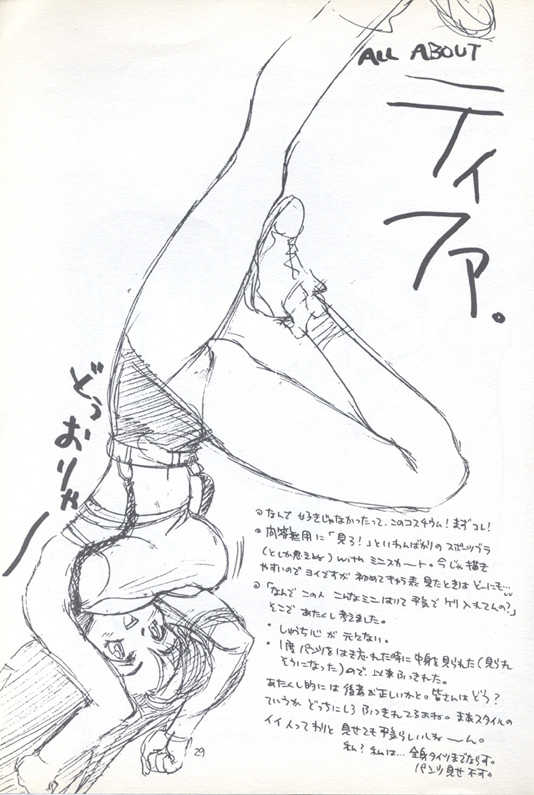 ALL ABOUT
ティファ。
どぅおりゃー
◎なんで好きじゃなかったって、このコスチウム!まずコレ!
◎問答無用に「見ろ!」といわんばかりのスポーツブラ
(としか思えない) with ミニスカート。今じゃ描き
やすいのでヨイですが初めてキャラ表見たときはどーにも…
◎「なんでこの人こんなミニはいて平気でケリ入れてんの?」
そこであたくし考てました。
・しゅうち心が元々ない。
・1度パンツをはき忘れた時に中身を見られた(見られ
そうになった)ので、以来ふっきれた。
あたくし的には後者が正しいかと。皆さんはどう?
ていうかどっちにしろふっきれてるよね。まあスタイルの
イイ人ってわりと見せても平気らしいしねーーん。
私?私は…全身タイツまでならす。
パンツ見せ不す。
29